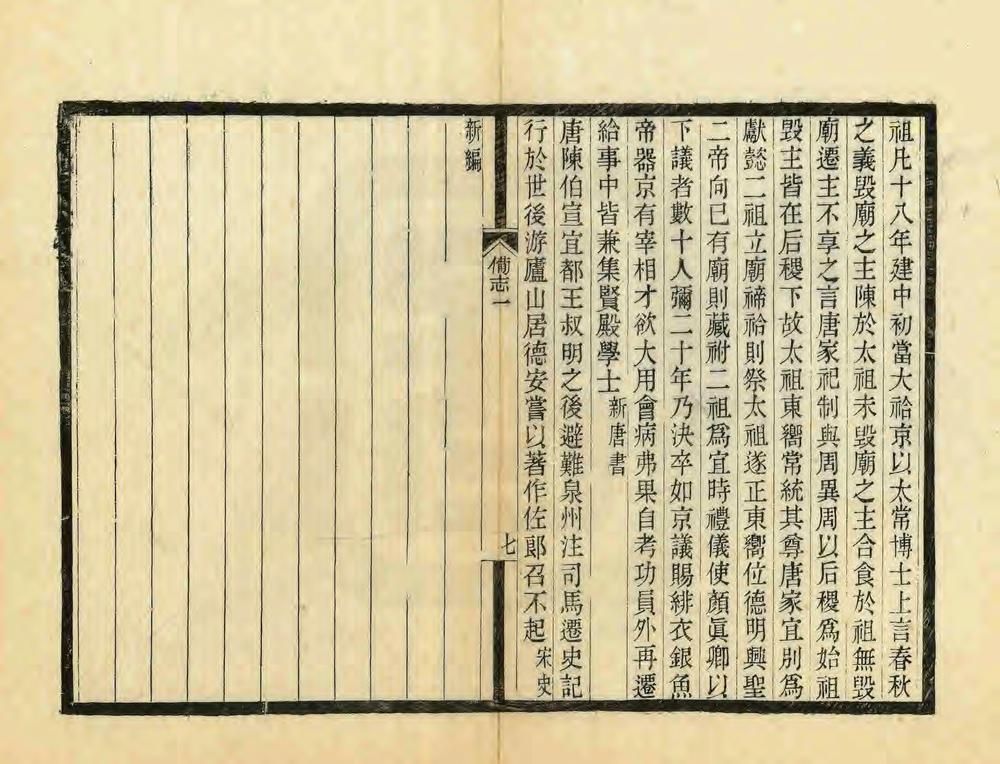 祖凡十八年建中初當大祫京以太常博士上言春秋
之義毀廟之主陳於太祖未毀廟之主合食於祖無毀
廟遷主不享之言唐家祀制與周異周以后稷爲始祖
毀主皆在后稷下故太祖東嚮常統其尊唐家宜別爲
獻懿二祖立廟禘祫則祭太祖遂正東嚮位德明興聖
二帝向已有廟則藏祔二祖爲宜時禮儀使顏眞卿以
下議者數十人彌二十年乃決卒如京議賜緋衣銀魚
帝器京有宰相才欲大用會病弗果自考功員外再遷
給事中皆兼集賢殿學士新唐書
唐陳伯宣宜都王叔明之後避難泉州注司馬遷史記
行於世後游廬山居德安嘗以著作佐郞召不起宋史
備志一
七
新編